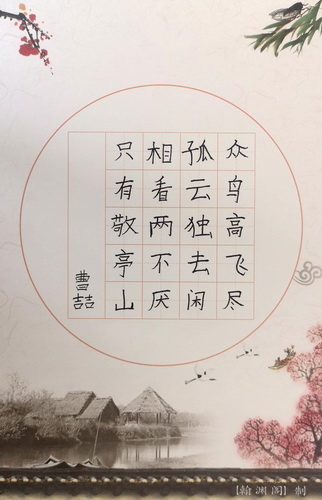 众鸟高飞尽
孤云独去闲
相看两不厌
只有敬亭山
曹喆
【翰渊阁】制